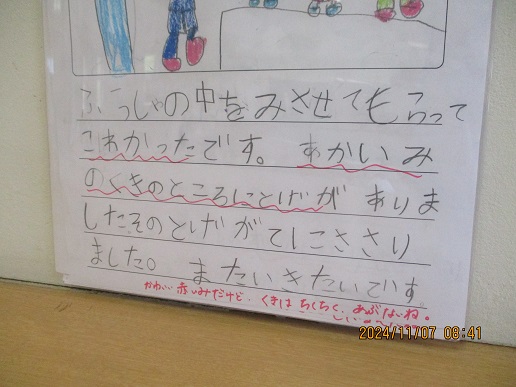 ふうしゃの中をみさせてもらって
これかったです。あかいみ
のくきのところにとげがありま
したそのとげがてにささり
ました。またいきたいです。
かわいい赤いみだけど、くきはちくちく、あぶないね。
2024/11/07 08:41